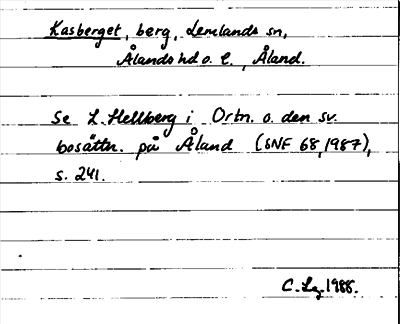 Kasberget, berg, Lemlands sn,
Ålands hd o. l., Åland.
Se L. Hellberg i Ortn. o. den sv.
bosättn. på Åland (SNF 68, 1987),
s. 241.
C. 1988.